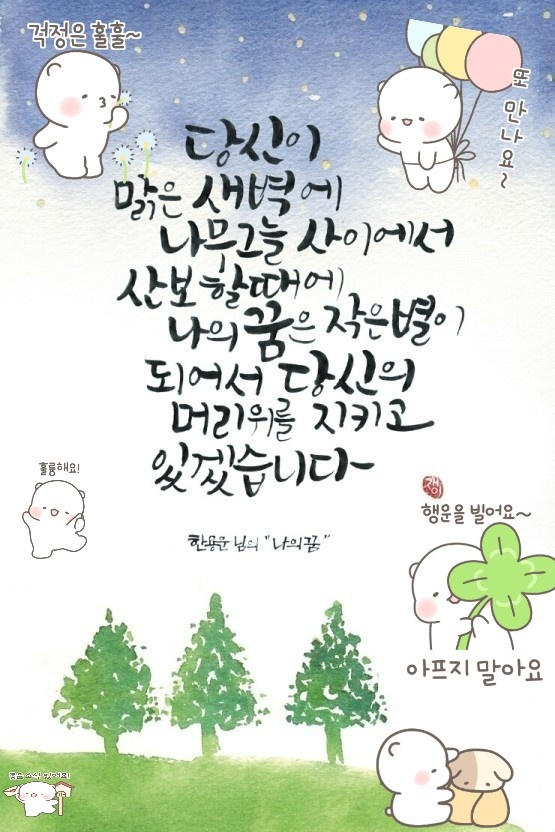 걱정은 훌훌~
또 만나요~
당신이
맑은 새벽에
나무그늘 사이에서
산보할때에
나의 꿈은 작은별이
되어서 당신의
머리위를 지키고
있겠습니다
한용운 님의 "나의꿈"
훌륭해요!
행운을 빌어요~
아프지 말아요